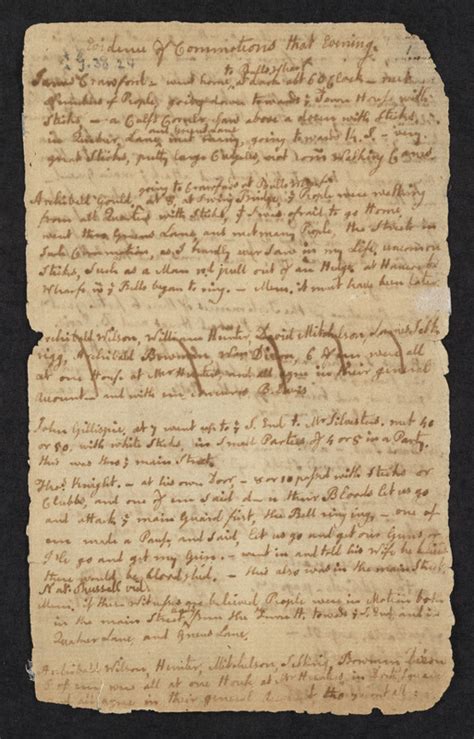 Evidence of Commotions that Evening.
James Crawford went home to Bulls Wharf at 6 oClock — met
Numbers of People going down towards ye Town House with
Sticks — at Calfs Corner, saw above a dozen with Sticks,
in Quaker Lane and Greens Lane met many, going towards K. S — very
great Sticks, pretty large Cudgells, not comn Walking Canes.
Archibald Gould, going to Crawfords at Bulls Wharf at 8, at Swing Bridge, ye People were walking
from all Quarters with Sticks, & I was afraid to go Home,
went thro Greens Lane and met many People, the Streets in
such Commotion, as I hardly ever saw in my Life, uncommon
Sticks, such as a Man wd pull out of an Hedge at Hancocks
Wharfe, ye Bells began to ring. — Mem. it must have been later
Archibald Wilson, William Hunter, David Mitchelson,
Archibald Bowman, Wm Dixon, 6 were all
at one House at Mr Hunters, and all agree in their general
Account and with one
John Gillispie, at 7 went up to ye S. End to Mr Silvesters, met 40
or 50, with white Sticks, in small Parties of 4 or 5 in a Party.
this was thro ye main Street.
Thos. Knight. — at his own Door, — 8 or 10 passd with Sticks or
Clubbs, and one of em said d—n their Bloods let us go
and attack ye main Guard first. the Bell ringing, — one of
em made a Pause and said let us go and get our Guns, or
I'le go and get my Gun. — went in and told his Wife he believd
there would be bloodshed. — this also was in the main Street
Nat. Russell vid.
Mem. if these Witnesses are believed People were in Motion both
in the main Street, from the Town H. towds ye S. End, and in
Quaker Lane, and Greens Lane,
Archibald Wilson, Hunter, Mitchelson, Selkrig, Bowman, Dixon
of em were all at one House at Mr Hunters in
agree in their general